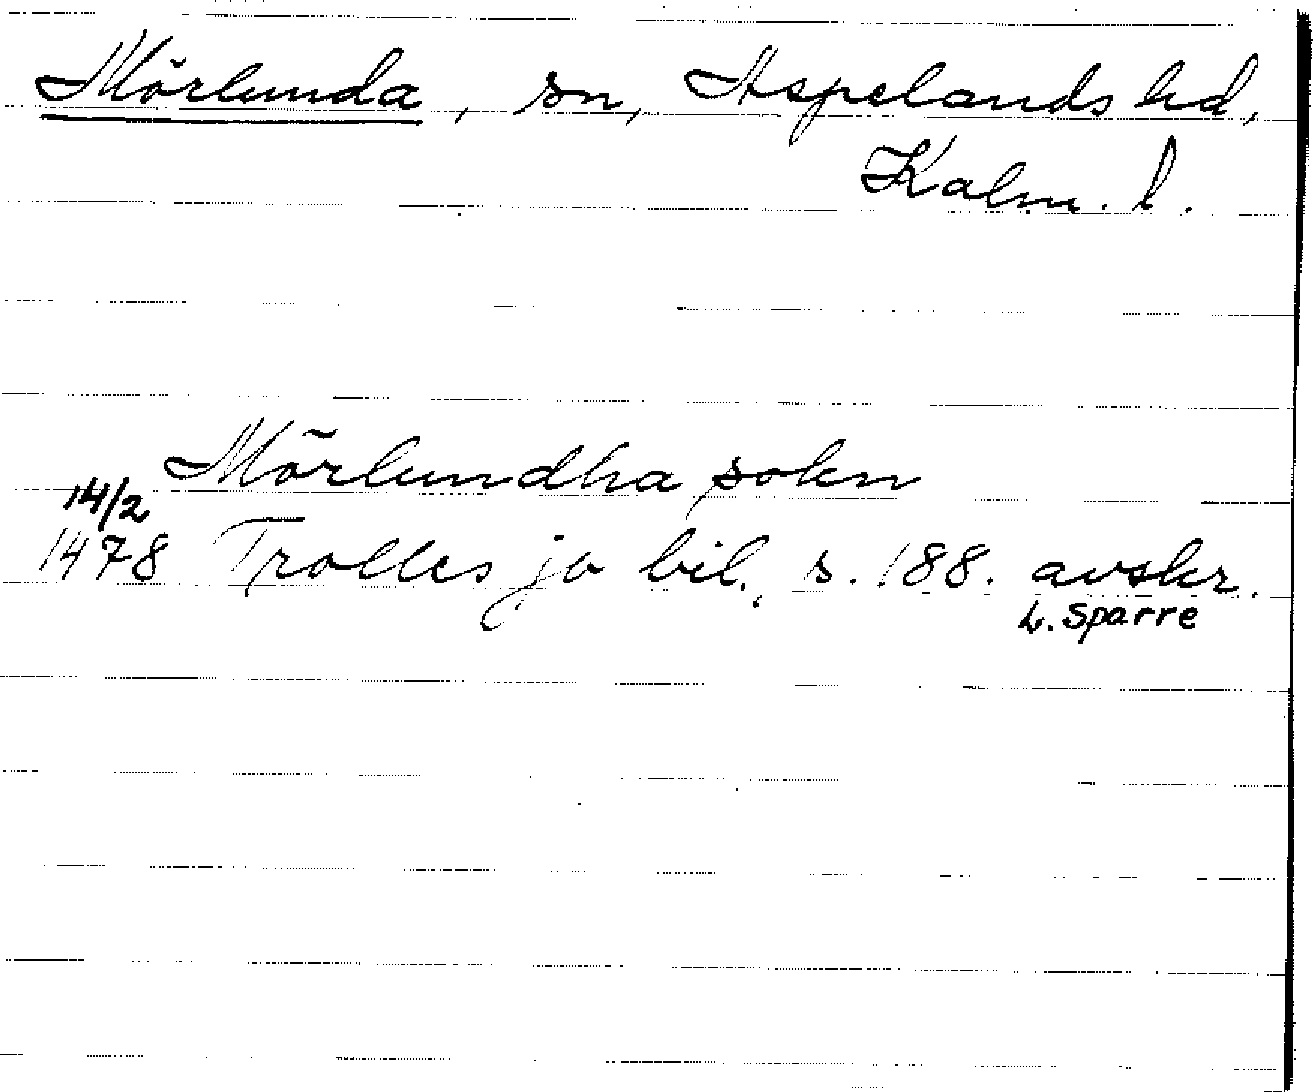 Mörlunda, sn, Aspelands hd,
Kalm. l.
Mörlundha sokn
14/2
1478 Trolles jo bil., s. 188. avskr.
L. Sparre